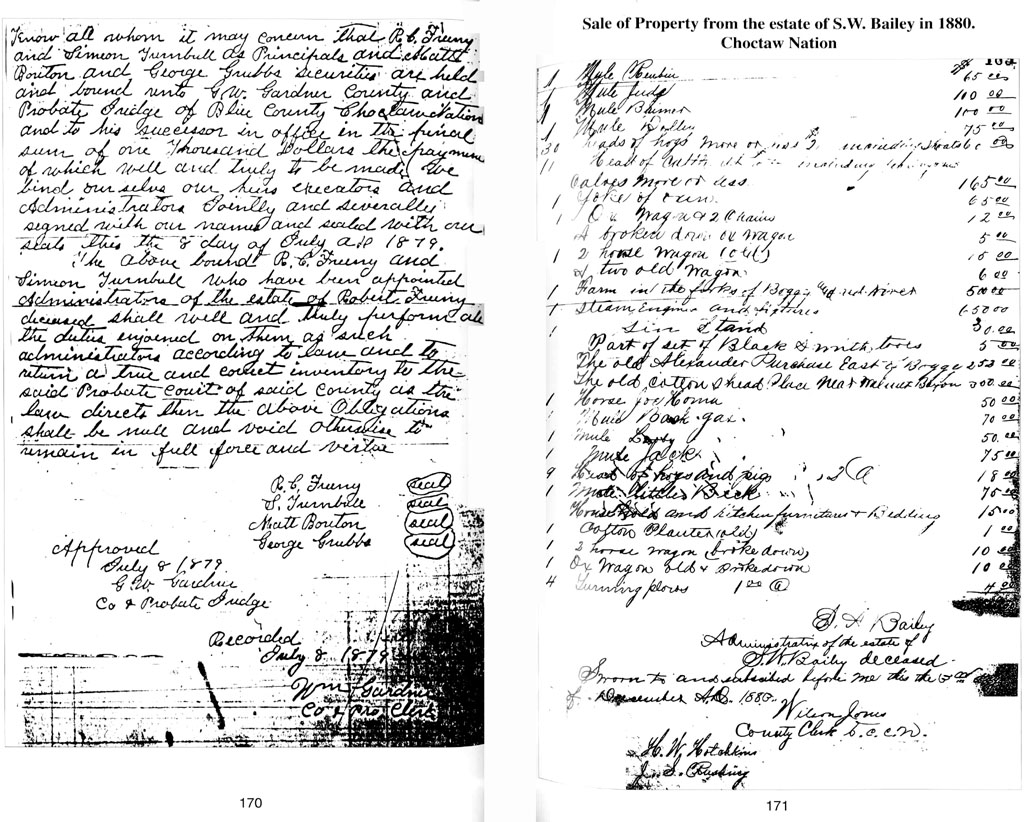 Know all whom it may concern that R.C. Freeny
and Simeon Turnbull as Principals and Matt
Bouton and George Grubbs securities are held
and bound unto G.W. Gardner County and
Probate Judge of Blue County Choctaw Nation
and to his successor in office in the penal
sum of one Thousand Dollars the payment
of which well and truly to be made We
bind our selvs our heirs executors and
Administrators Jointly and severally
signed with our names and sealed with our
seals this the 8 day of July A.D 1879.
The above bound R.C. Freeny and
Simeon Turnbull who have been appointed
Administrators of the estate of Robert Freeny
deceased shall well and truly perform all
the duties enjoened on them as such
administrators according to law and to
return a true and correct inventory to the
said Probate Court of said County as the
law directs then the above Obligations
shall be null and void otherwise to
remain in full force and virtue
R.C. Freeny seal
S. Turnbull seal
Matt Bouton seal
George Grubbs seal
Approved
July 8 1879
G.W. Gardner
Co & Probate Judge
Recorded
July 8 1879
Wm Gardner
Co & Pro Clerk
170
Sale of Property from the estate of S.W. Bailey in 1880.
Choctaw Nation
1 Mule 65 00
1 Mule Judy 110 00
1 Mule 100 00
1 Mule 75 00
30 heads of hogs more or less
11 Head of
Calves more or less 165 00
1 Yoke of oxen 65 00
1 Ox Wagon & 2 Chains 12 00
A broken down ox wagon 5 00
1 2 horse wagon (old) 15 00
two old wagons 6 00
1 Farm in the forks of Boggy and red River 500 00
1 Steam Engine and fixtures 650 00
1 Gin Stand 30.00
Part of set of Black Smith tools 5 00
The old Alexander Purchase East of Boggy
The old Cotton Place Near Walnut Bayou 300 00
1 Horse 50 00
1 70 00
1 Mule 50.00
1 Mule Jack 75 00
9 Head of hogs and pigs 2 @ 18 00
1 Mule Beck 75 00
Household and kitchen furniture & Bedding 15 00
1 Cotton Planter (old) 1 00
1 2 horse wagon (broke down) 10 00
1 Ox Wagon old & brokedown 10 00
4 Turning plows 1 00 @ 4 00
Bailey
Administratrix of the estate of
S.W. Baily deceased.
Sworn to and subscribed before me this the
of December A.D. 1880.
Wilson Jones
County Clerk
H. W. Hotchkins
171